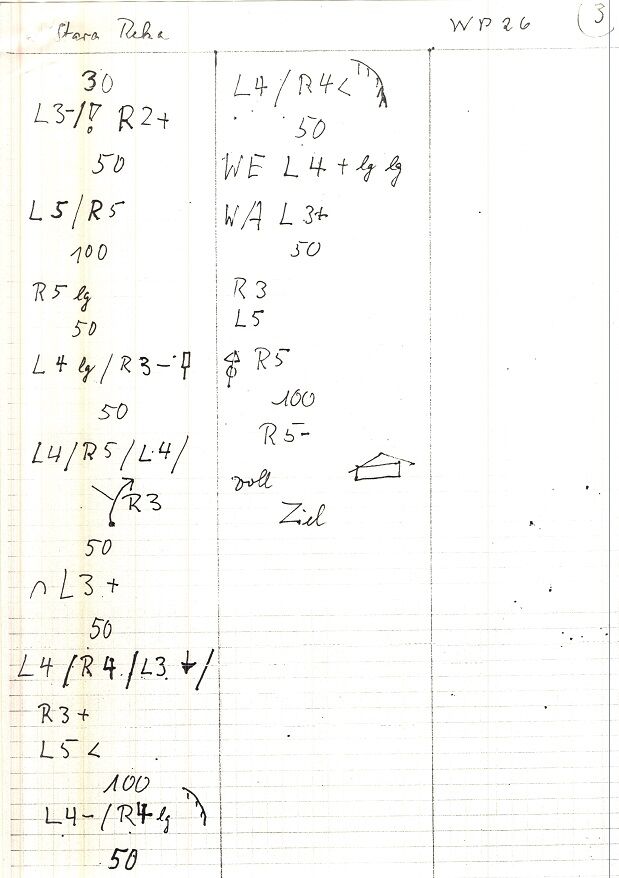 Stara Reka
WP26
3
30
L3-/!! R2+
50
L5/R5
100
R5 lg
50
L4 lg / R3-
50
L4/R5/L4/
R3
50
∩ L3+
50
L4/R4/L3 ↓/
R3+
L5 <
100
L4-/R4 lg
50
L4/R4<
50
WE L4+ lg lg
WA L3+
50
R3
L5
R5
100
R5-
voll
Ziel